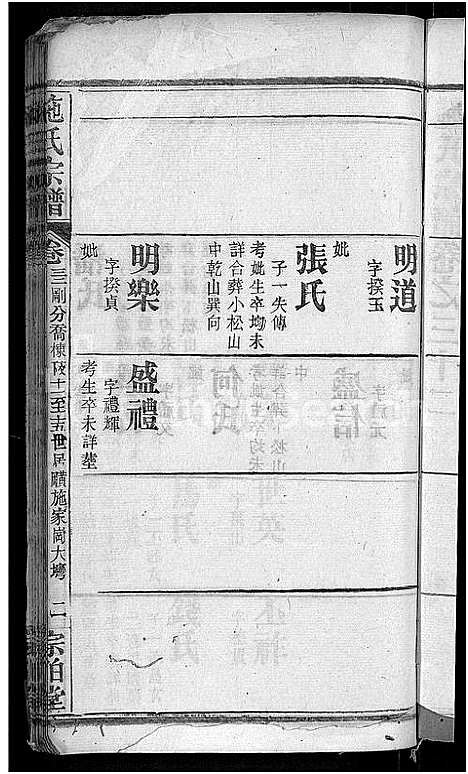 明道
字揆玉
妣
張氏
子一失傳
考妣生卒均未
詳合葬小松山
中乾山巽向
明樂
字揆貞
妣
盛禮
字禮輝
考生卒未詳塟
施氏宗譜
卷三剛分喬棟
十一至十五世居
施家崗大塆
二
宗柏堂